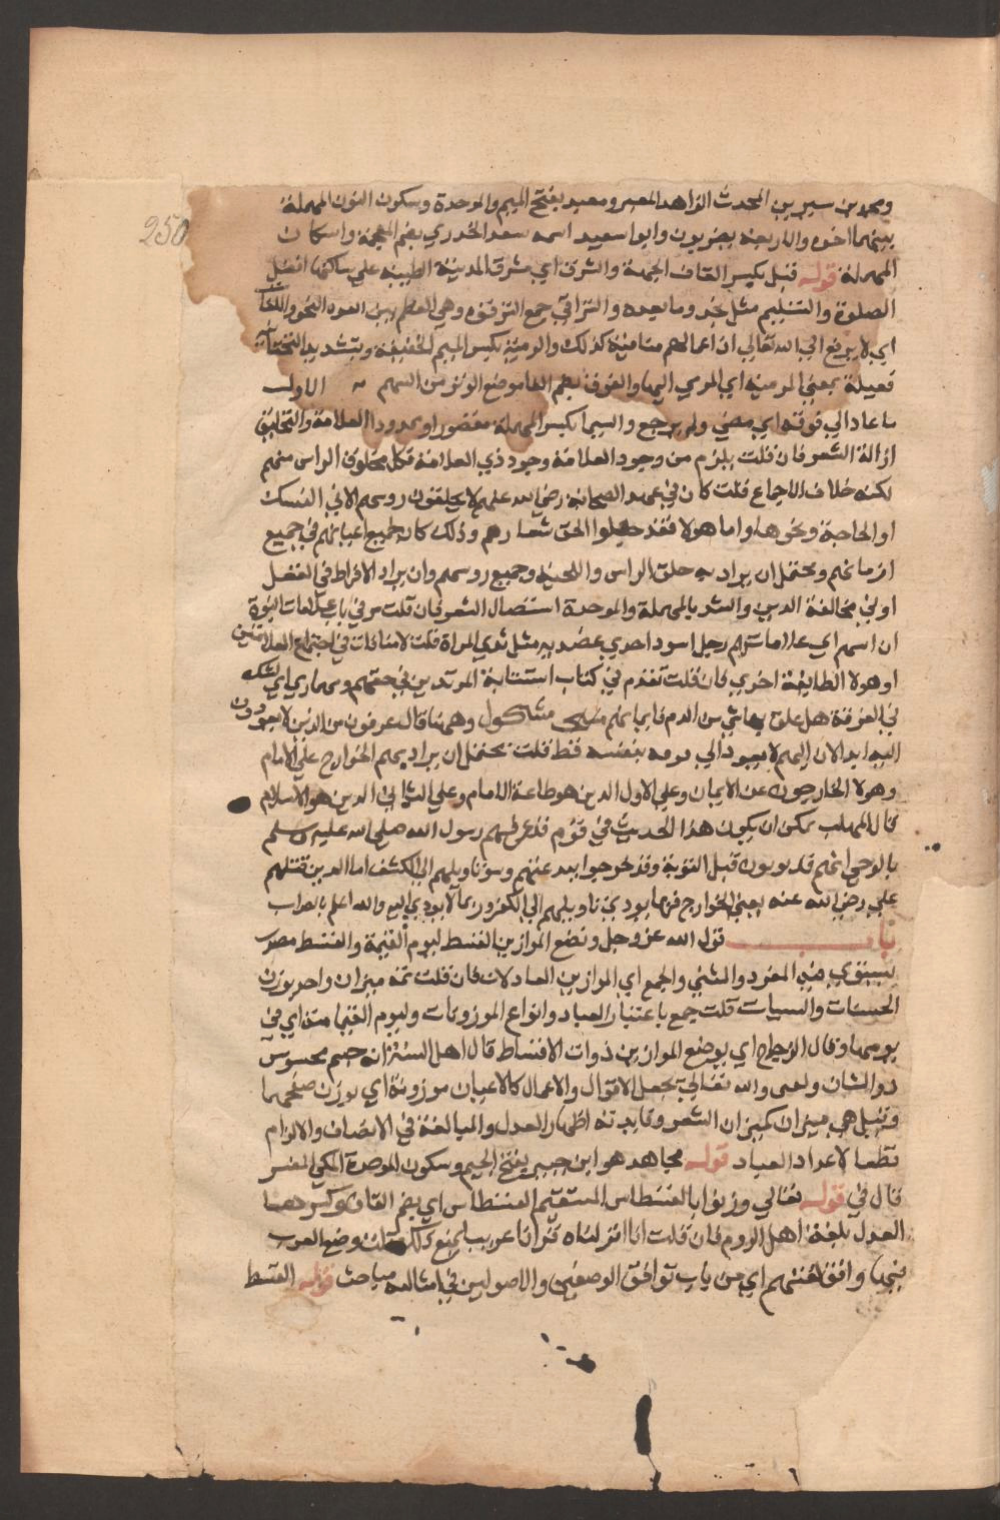 250
ومحمد بن سيرين المحدث الزاهد المعبر ومعبد بفتح الميم والموحدة وسكون النون المهملة
بينهما اخوه والاربعة بصريون وابو سعيد اسمه سعد الخدري بضم المعجمة واسكان
المهملة قوله قبل بكسر القاف الجهة والشرق اي مشرق المدينة الطيبة على ساكنها افضل
الصلوة والتسليم مثل نجد وما بعده والتراقي جمع الترقوة وهي العظم بين النحر والعاتق
اي لا يرفع الي الله تعالي اذ اعمالهم منافية كذلك والرمية بكسر الميم الخفيفة وبتشديد التحتانية
فعيلة بمعني المرمية اي المرمي اليها والفوق بضم الفا موضع الوتر من السهم الاول
ما عاد الي فوقه اي مضي ولم يرجع والسيما بكسر المهملة مقصورا وممدودا العلامة والتحليق
ازالة الشعر فان قلت يلزم من وجود العلامة وجود ذي العلامة فكل محلوق الراس منهم
لكنه خلاف الاجماع قلت كان في عهد الصحابة رضي الله عنهم لا يحلقون روسهم الا في النسك
او الحاجة ونحوها واما هولا فقد جعلوا الحلق شعارهم وذلك كان لجميع اعيانهم في جميع
ازمانهم ويحتمل ان يراد به حلق الراس واللحية وجميع روسهم وان يراد الافراط في القتل
او في مخالفة الدين والتسبيد بالمهملة والموحدة استئصال الشعر فان قلت مر في باب علامات النبوة
ان اسمهم اي علاماتهم رجل اسود احدي عضديه مثل ثدي المراة قلت لا منافات في اجتماع العلامتين
او هولا الطايفة اخري فان قلت تقدم في كتاب استتابة المرتدين في حقهم ويتماري اي يشك
في الفوقة هل علق بها شي من الدم فايمانهم مشكوك وههنا قال يمرقون من الدين لا يعودون
اليه ابدا لان السهم لا يعود الي فوقه بنفسه قط قلت يحتمل ان يراد بهم الخوارج علي الامام
وهولا الخارجون عن الايمان وعلي الاول الدين هو طاعة الامام وعلي الثاني الدين هو الاسلام
قال المهلب يمكن ان يكون هذا الحديث في قوم قد عرفهم رسول الله صلي الله عليه وسلم
بالوحي انهم قبل التوبة وقد خرجوا ببدعتهم وسوء تاويلهم الي الكفر اما الذين قتلهم
علي رضي الله عنه يعني الخوارج فربما يودي تاويلهم الي الكفر وربما لا يودي اليه والله اعلم بالصواب
باب قول الله عز وجل ونضع الموازين القسط ليوم القيمة والقسط مصدر
يستوي فيه المفرد والمثني والجمع اي الموازين العادلات فان قلت ثمة ميزان واحد يوزن
الحسنات والسيات قلت جمع باعتبار العباد وانواع الموزونات وليوم القيامة اي في
يومها وقال الزجاج اي يوضع الموازين ذوات الاقساط قال اهل السنة انه جسم محسوس
ذو لسان وكفتين والله تعالي يجعل الاقوال والاعمال كالاعيان موزونة اي يوزن صحفها
وقيل هي ميزان كميزان الشعر وفايدته اظهار العدل والمبالغة في الانصاف والالزام
قطعا لاعذار العباد قوله مجاهد هو ابن جبر بفتح الجيم وسكون الموحدة المكي المفسر
قال في قوله تعالي وزنوا بالقسطاس المستقيم القسطاس اي بضم القاف وكسرها
العدل بلغة اهل الروم فان قلت انا انزلناه قرانا عربيا يمنع ذلك قلت وضع العرب
فيها وافق لغتهم اي من باب توافق الوضعين وللاصوليين في امثاله مباحث قوله القسط